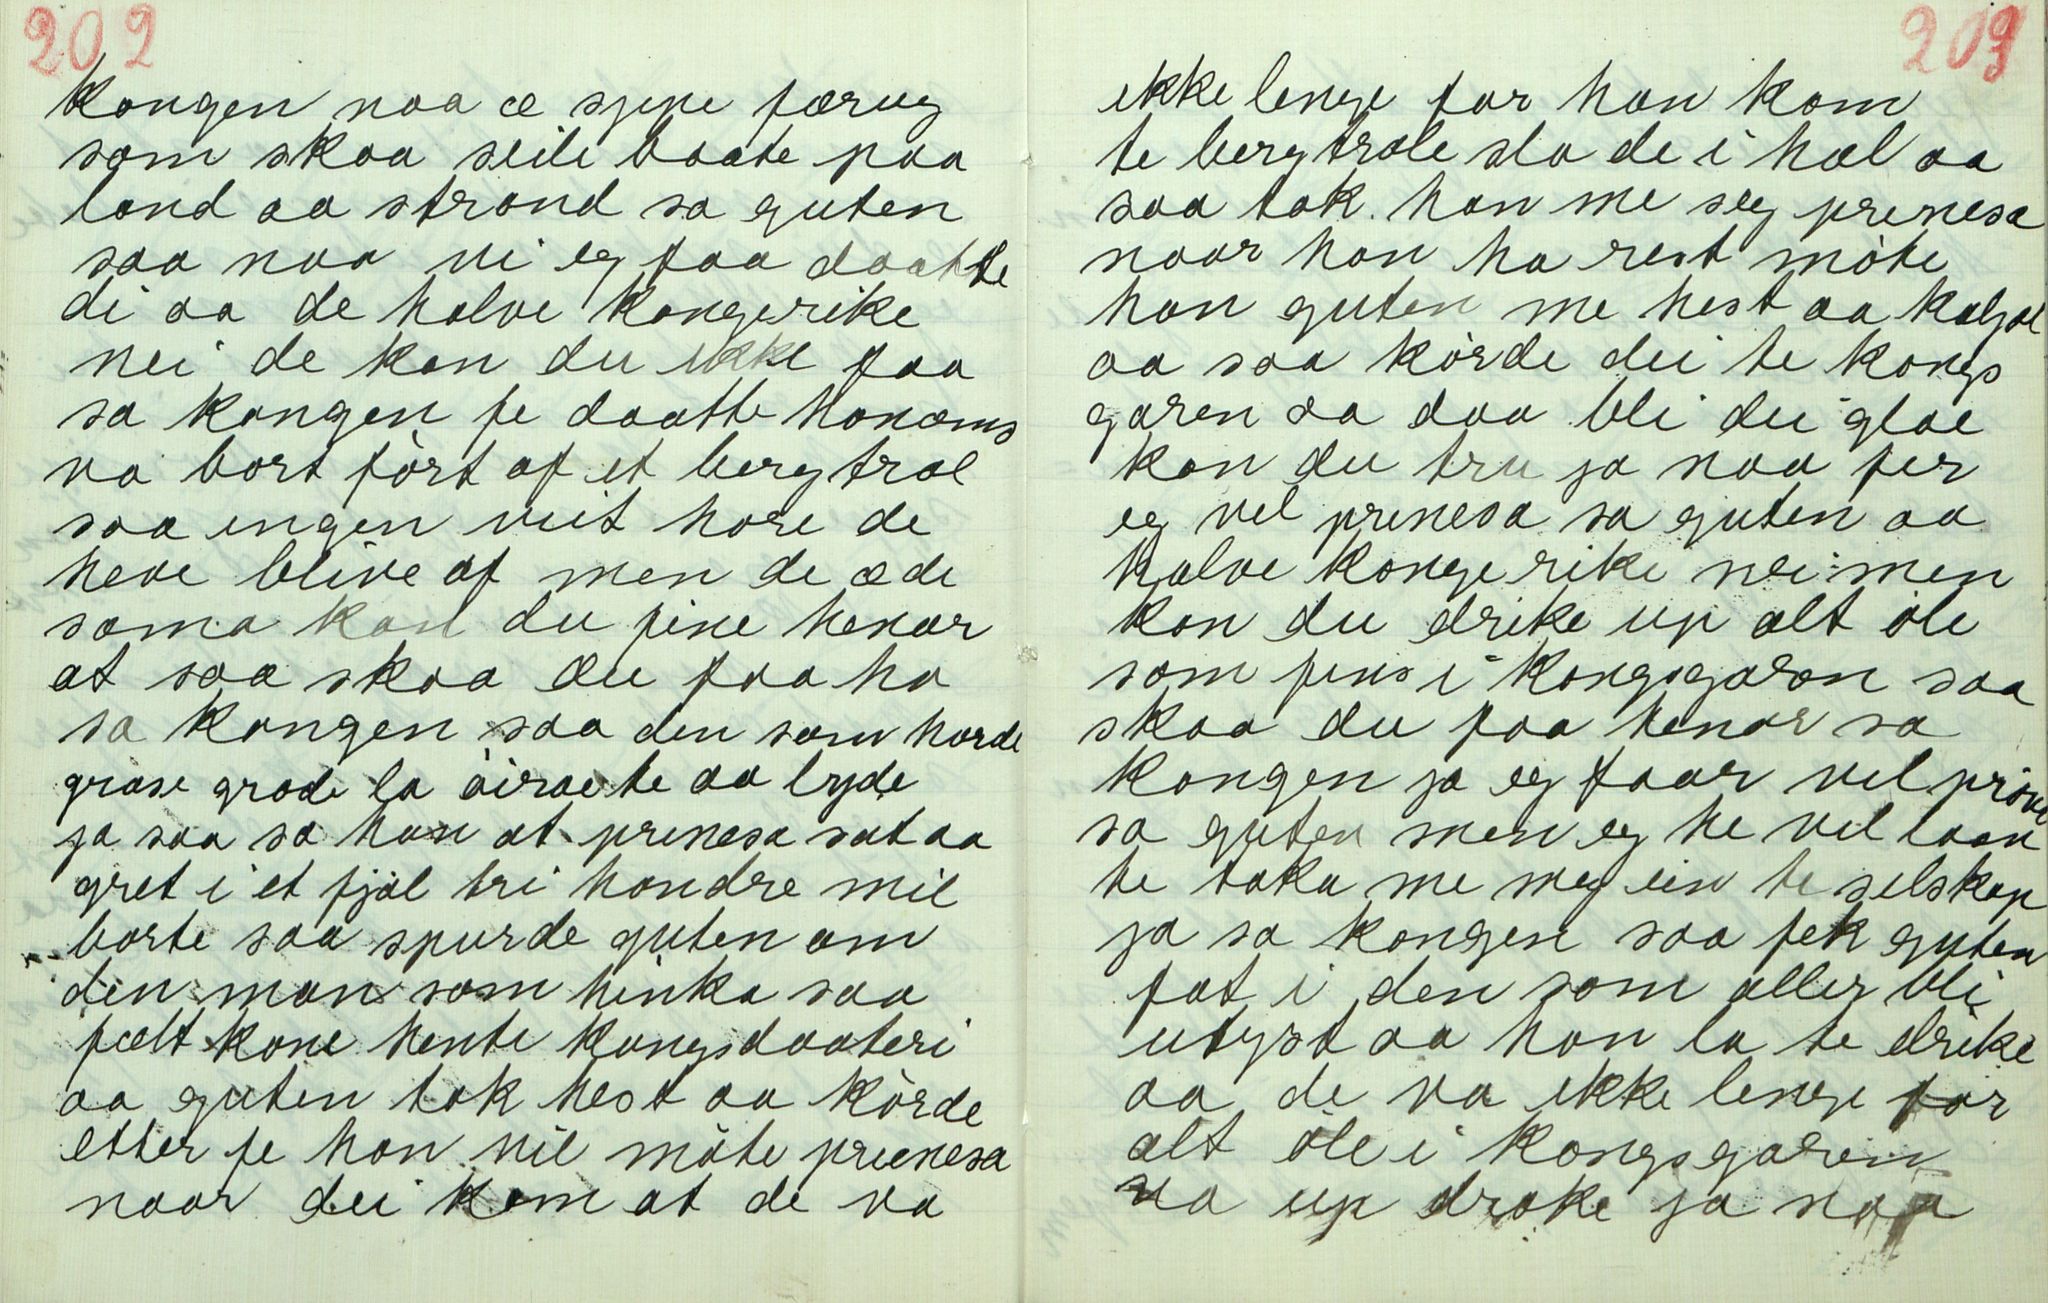 202
kongen naa æ sjepe færug
som skaa seile baate paa
land aa strand sa guten
saa naa vi eg faa daatte
di aa de halve kongerike
nei de kan du ikke faa
sa kongen fe daatte honæms
va bort ført af et berg trol
saa engen veit hore de
heve blive af men de æ de
soma kan du fine henar
at saa skaa du faa ho
sa kongen saa den som hørde
grase grode la øirae te aa lyde
ja saa sa han at prenesa sat aa
gret i et fjøl tri hondre mil
borte saa spurde guten om
den man som hinka saa
fælt kone hente kongsdaateri
aa guten tok hest aa kørde
etter fe han vil møte preenesa
naar dei kom at de va
203
ekke lenge før han kom
te berg trole slo de i hæl aa
saa tok han me seg prenesa
naar han ha rest møte
han guten me hest aa kaljol
aa saa kørde dei te kongs
garen aa daa bli dei glae
kan du tru ja naa fer
eg vel prenesa sa guten aa
halve konge rike nei men
kan du drike up alt øle
som fins i kongsgaren saa
skaa du faa henar sa
kongen ja eg faar vel prøve
sa guten men eg he vel laav
te taka me meg ein te selskap
ja sa kongen saa fek guten
fat i den som aller bli
utyst aa han la te drike
aa de va ekke lenge før
alt øle i kongsgaren
va up droke ja naa